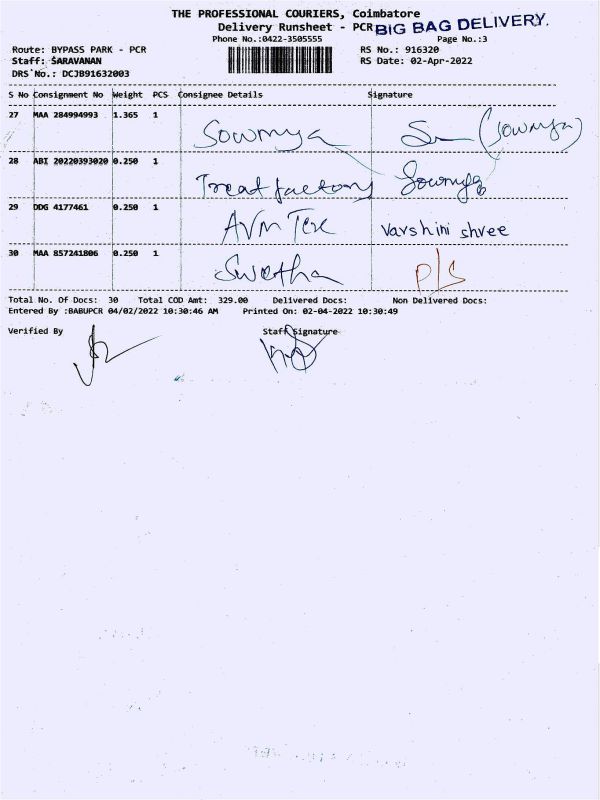 THE PROFESSIONAL COURIERS, Coimbatore
Delivery Runsheet - PCR BIG BAG DELIVERY.
Phone No.:0422-3505555 Page No.:3
Route: BYPASS PARK - PCR RS No.: 916320
Staff: SARAVANAN RS Date: 02-Apr-2022
DRS No.: DCJB91632003
S No Consignment No Weight PCS Consignee Details Signature
27 MAA 284994993 1.365 1 Sowmya (Sowmya)
28 ABI 20220393020 0.250 1 Treat factory Sowmya
29 DDG 4177461 0.250 1 AVM Tex Varshini shree
30 MAA 857241806 0.250 1 Swetha P/S
Total No. Of Docs: 30 Total COD Amt: 329.00 Delivered Docs: Non Delivered Docs:
Entered By :BABUPCR 04/02/2022 10:30:46 AM Printed On: 02-04-2022 10:30:49
Verified By Staff Signature